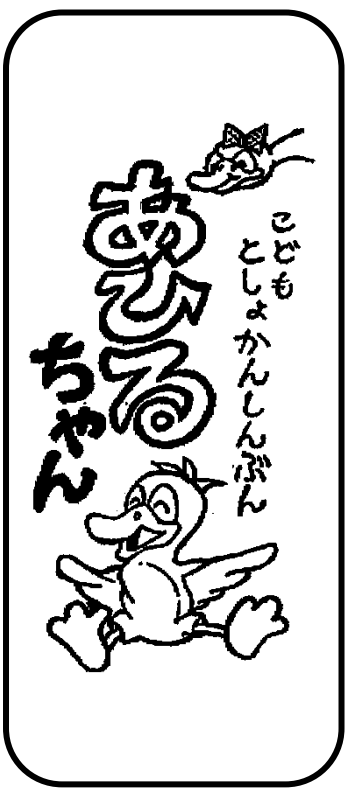 こども
としょかんしんぶん
あひる
ちゃん